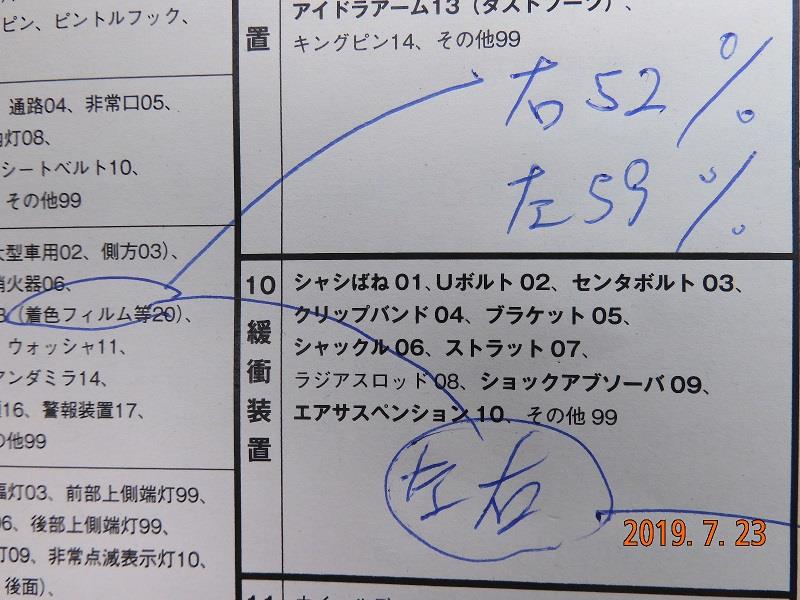 ピン、ピントルフック、
通路04、非常口05、
灯08、
シートベルト10、
その他99
型車用02、側方03)、
火器06、
(着色フィルム等20)、
ウォッシャ11、
アンダミラ14、
16、警報装置17、
他99
灯03、前部上側端灯99、
06、後部上側端灯99、
灯09、非常点滅表示灯10、
後面)、
置
アイドラアーム13(ダストブーツ)、
キングピン14、その他99
右 52 %
左 59 %
10 緩衝装置
シャシばね 01、Uボルト 02、センタボルト 03、
クリップバンド 04、ブラケット 05、
シャックル 06、ストラット 07、
ラジアスロッド 08、ショックアブソーバ 09、
エアサスペンション 10、その他 99
左右
2019. 7. 23